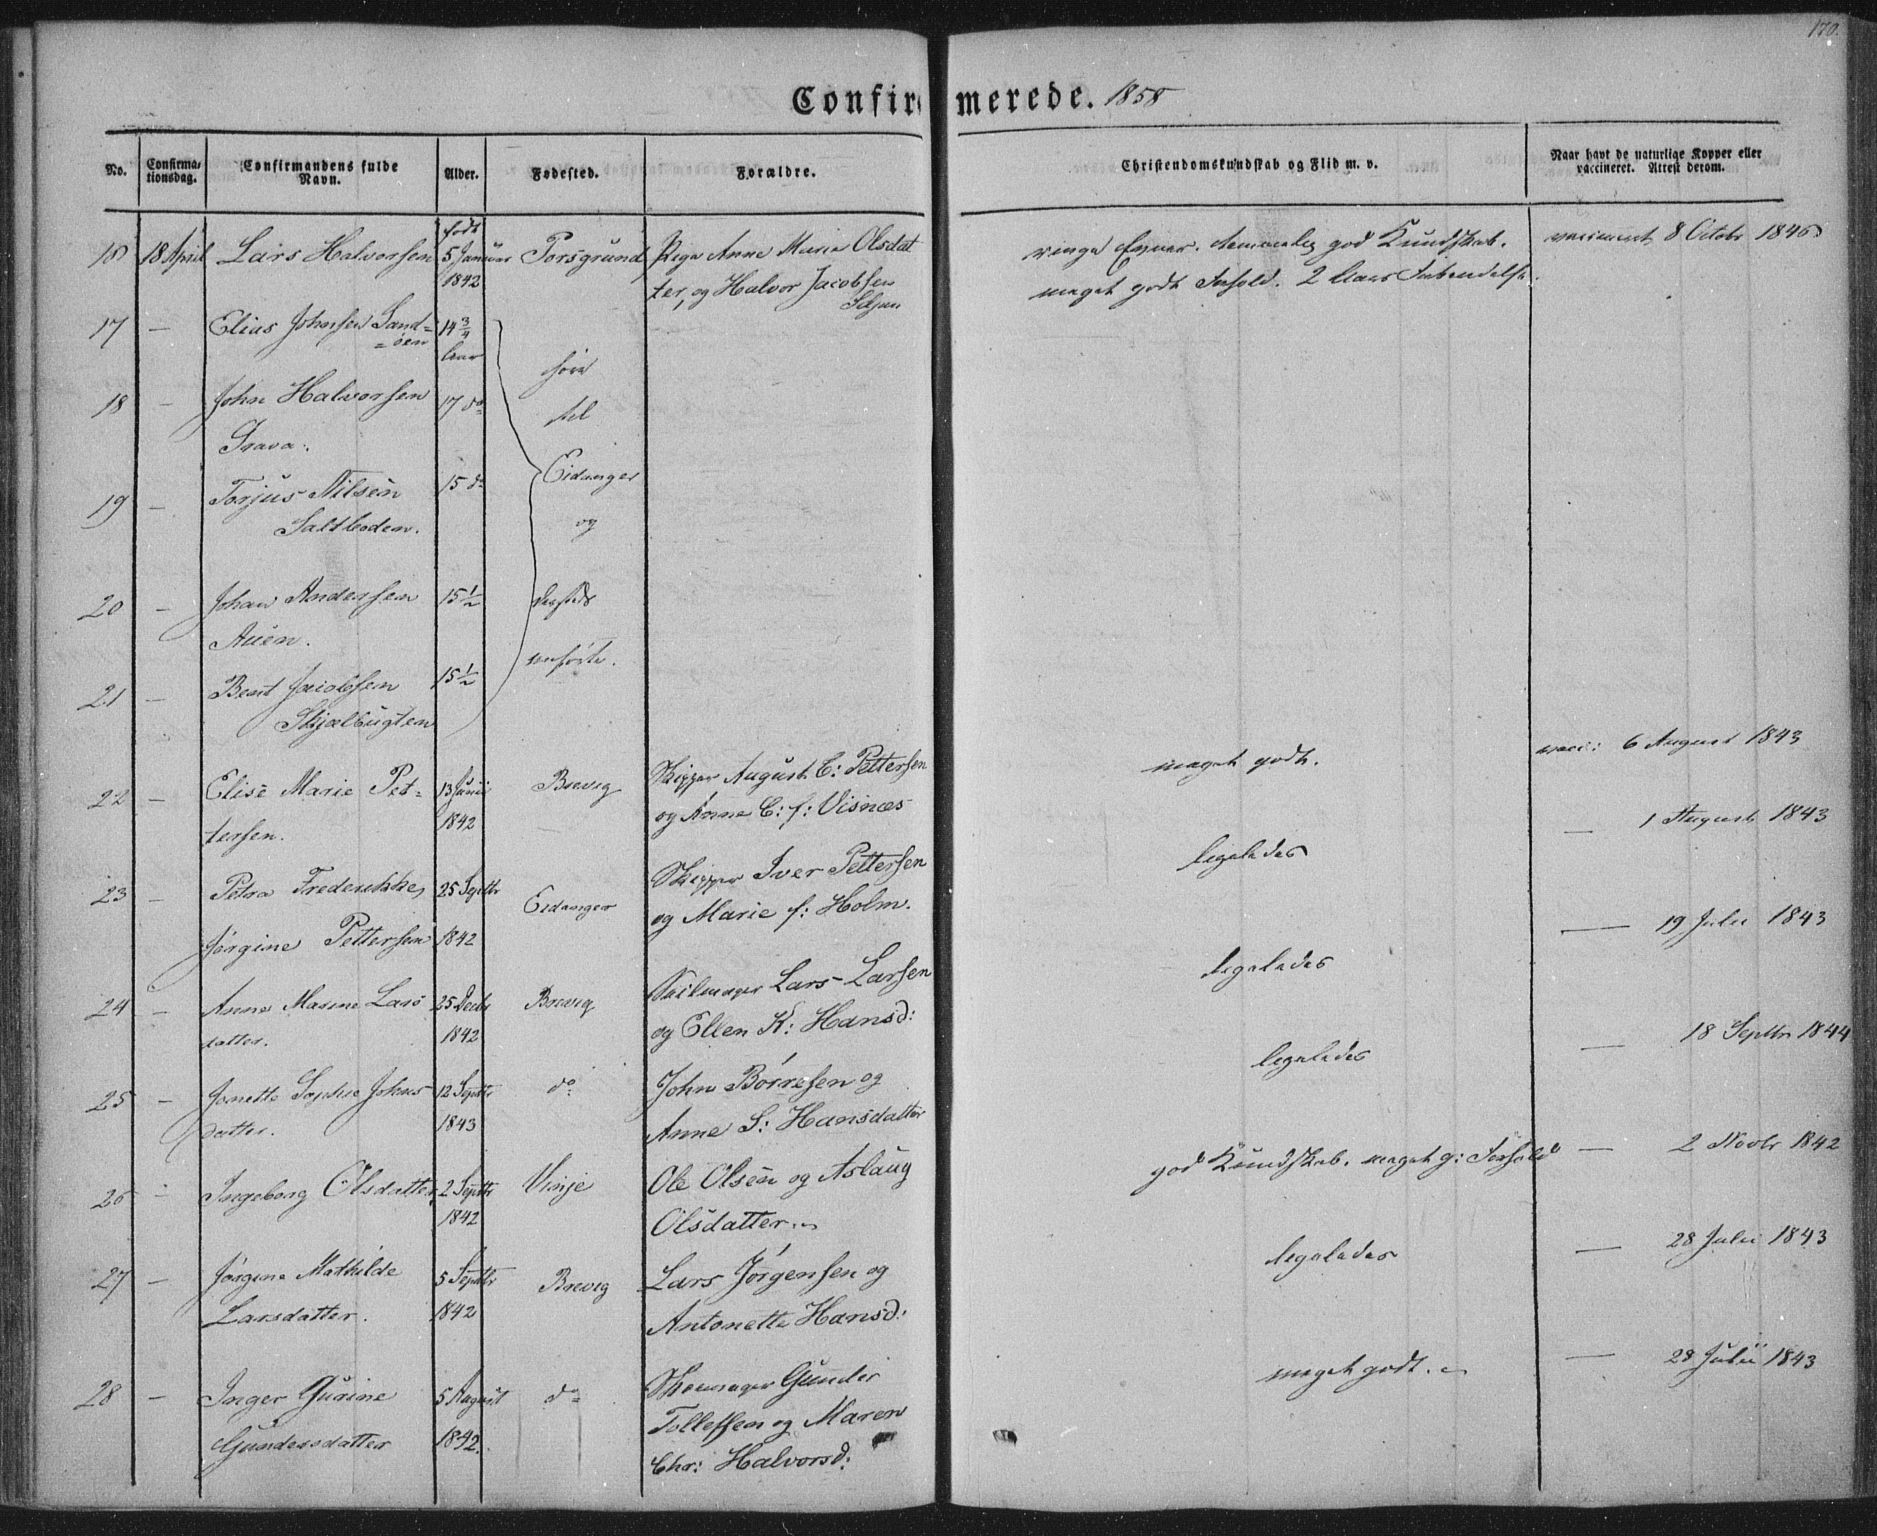 170.
Confirmerede. 1858
No.
Confirma-
tionsdag.
Confirmandens fulde
Navn.
Alder.
Fødested.
Forældre.
Christendomskundskab og Flid m. v.
Naar havt de naturlige Kopper eller
vaccineret. Attest derom.
18 April Lars Halvorsen født 5 Januar 1842 Porsgrund Pige Anne Marie Olsdat
ter, og Halvor Jacobsen
ringe Evner. temmelig god Kundskab.
meget godt Forhold. 2 Aars
vaccineret 8 Octobr 1846
17 — Elias Johnsen Sand=
=øen 14 3/4
Aar
18 — John Halvorsen 17 do
Grava.
19 — Torjus Nilsen 15 do
Saltboden.
20 — Johan Andersen 15 1/2
Auen.
21 — Bent Jacobsen 15 1/2
Skjælbugten
høre
til
Eidanger
og
dersteds
22 — Elise Marie Pet= 13 Junii Brevig Skipper August C: Pettersen meget godt. vacc: 6 August 1843
tersen. 1842 og Anne C: f: Visnæs
23 — Petra Frederikke 25 Septbr Eidanger Skipper Iver Pettersen ligeledes — 1 August 1843
Jørgine Pettersen 1842 og Marie f: Holm.
24 — Anne Marine Lars 25 Decbr Brevig Seilmager Lars Larsen ligeledes — 19 Julii 1843
datter. 1842 og Ellen K: Hansd:
25 — Jonette Sophie Johns 12 Septbr do John Børresen og ligeledes — 18 Septbr 1844
datter. 1843 Anne S: Hansdatter
26 — Ingeborg Olsdatter 2 Septbr Vinje Ole Olsen og Aslaug god Kundskab. meget g: Forhold — 2 Novbr 1842
1842 Olsdatter.
27 — Jørgine Mathilde 5 Septbr Brevig Lars Jørgensen og ligeledes — 28 Julii 1843
Larsdatter. 1842 Antonette Hansd:
28 — Inger Gurine 5 August do Skomager Gunder meget godt. — 28 Julii 1843
Gundersdatter 1842. Tollefsen og Maren
Chr: Halvorsd: